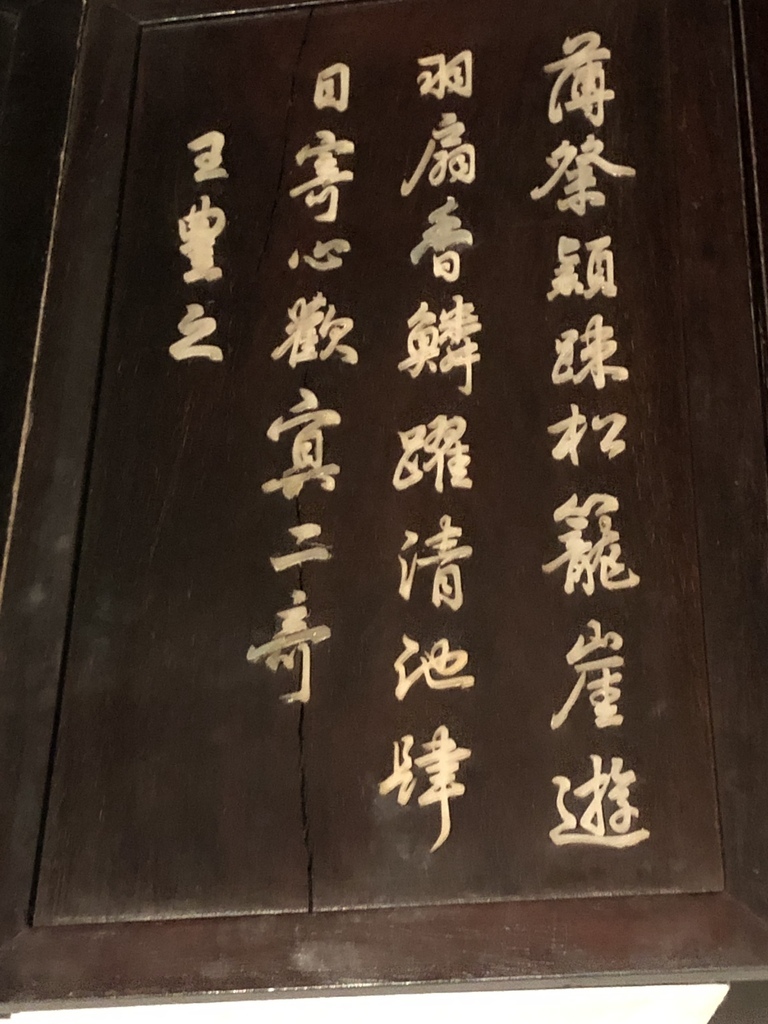 薄祭穎疎松籠崖遊
羽扇香鱗躍清池肆
目寄心歡寘二奇
王豊之